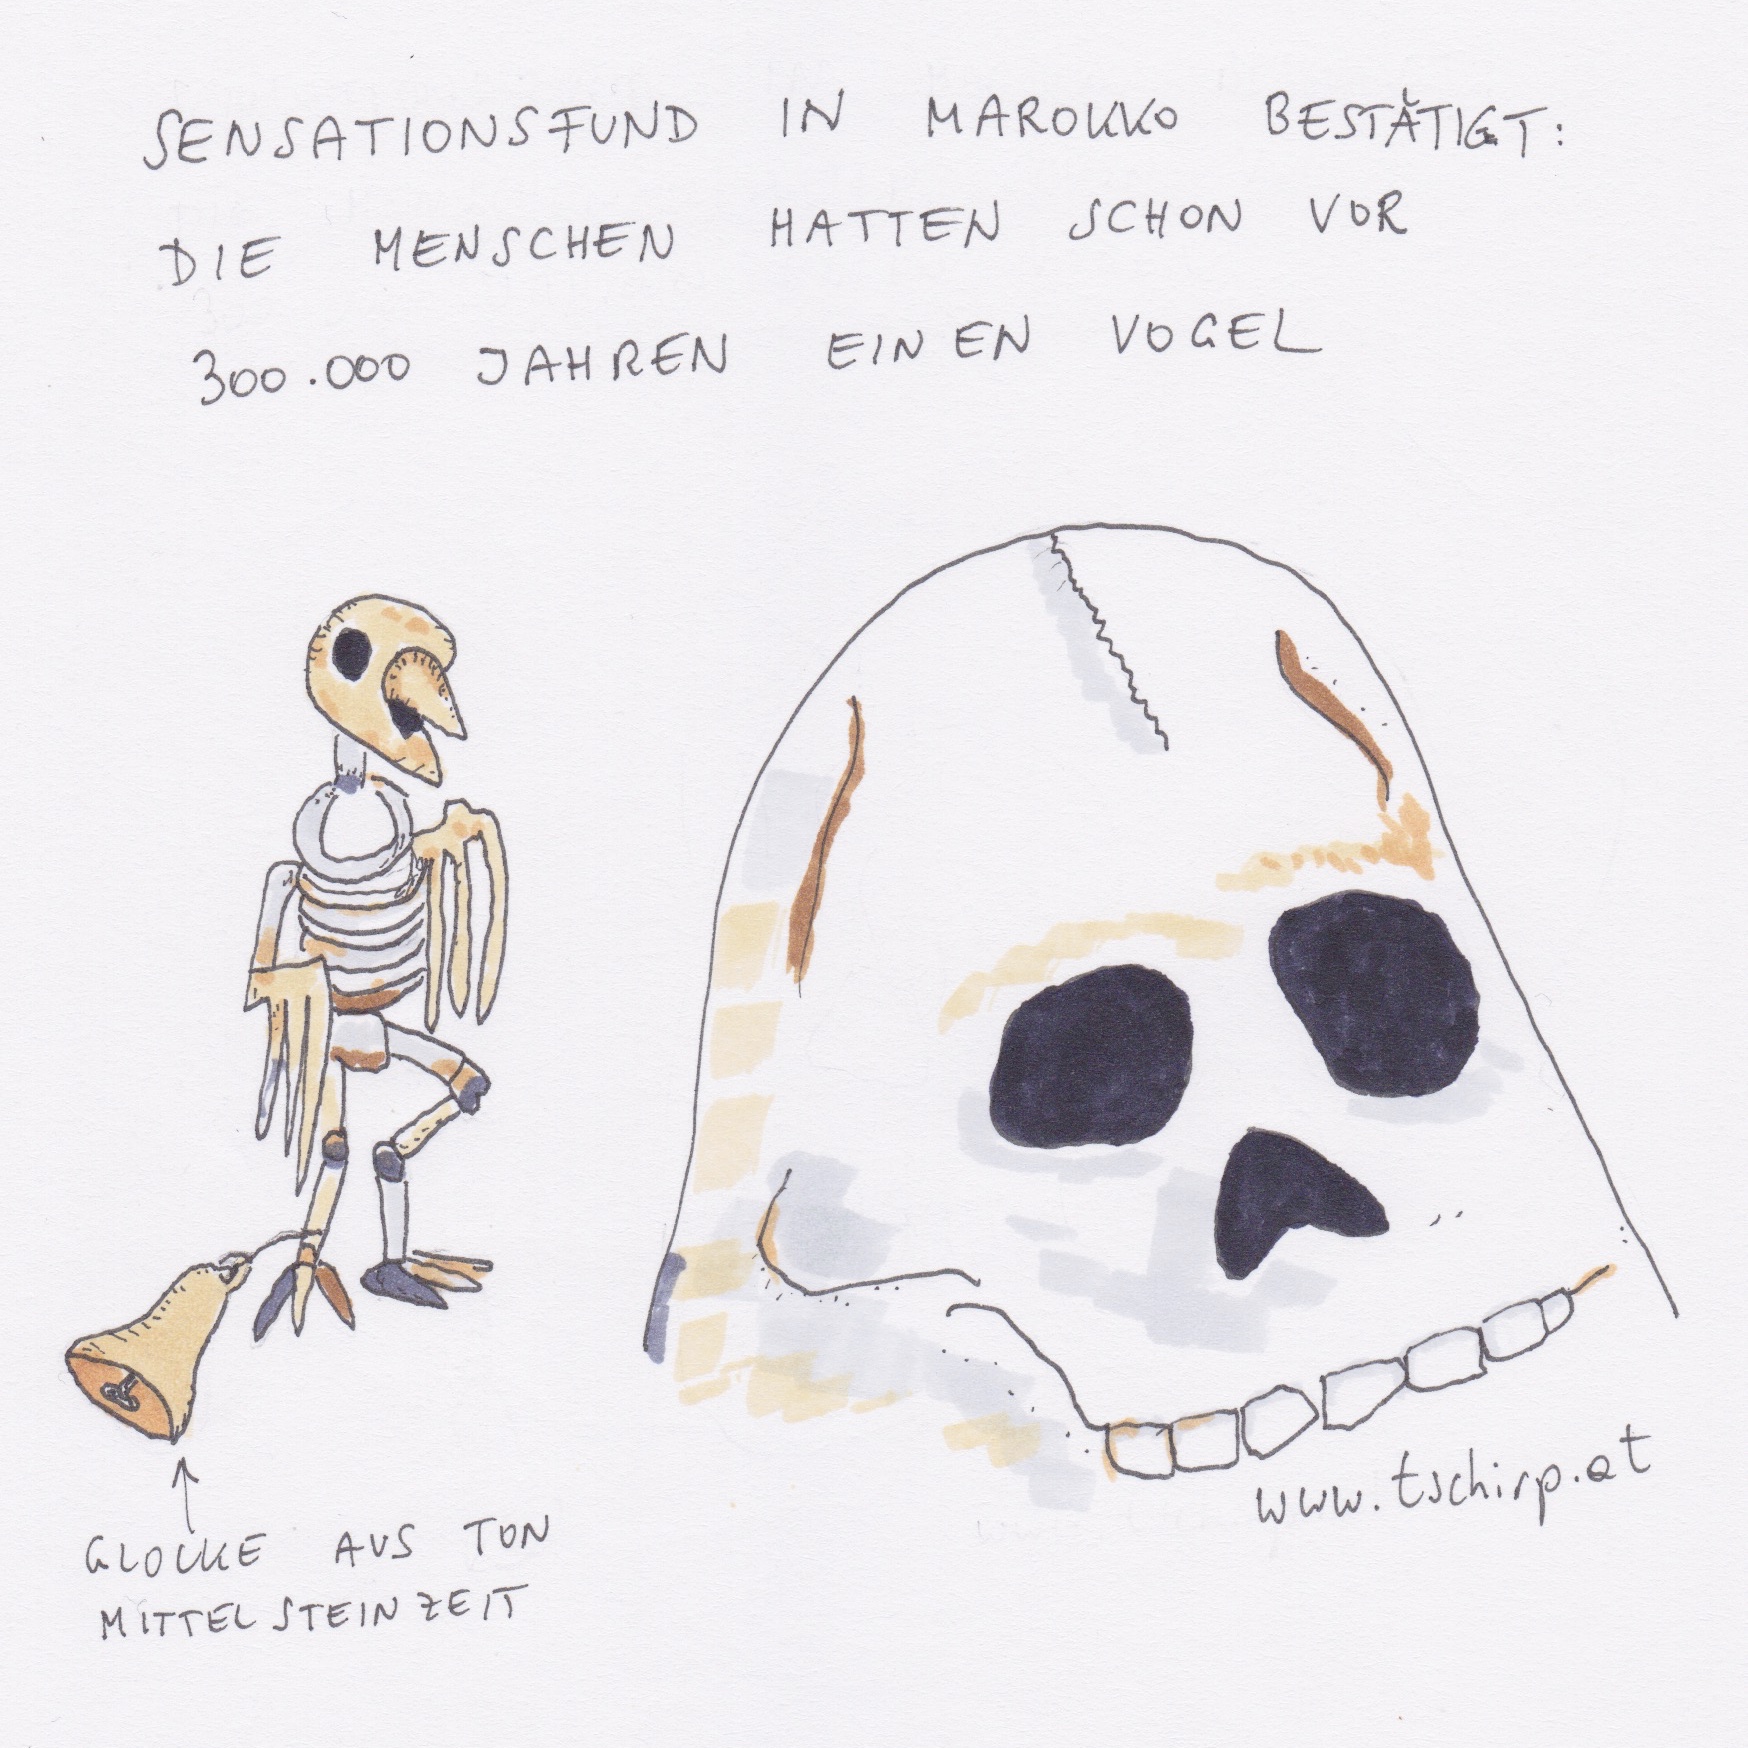 SENSATIONSFUND IN MAROKKO BESTÄTIGT:
DIE MENSCHEN HATTEN SCHON VOR
300.000 JAHREN EINEN VOGEL
www.tschirp.at
GLOCKE AUS TON
MITTELSTEINZEIT